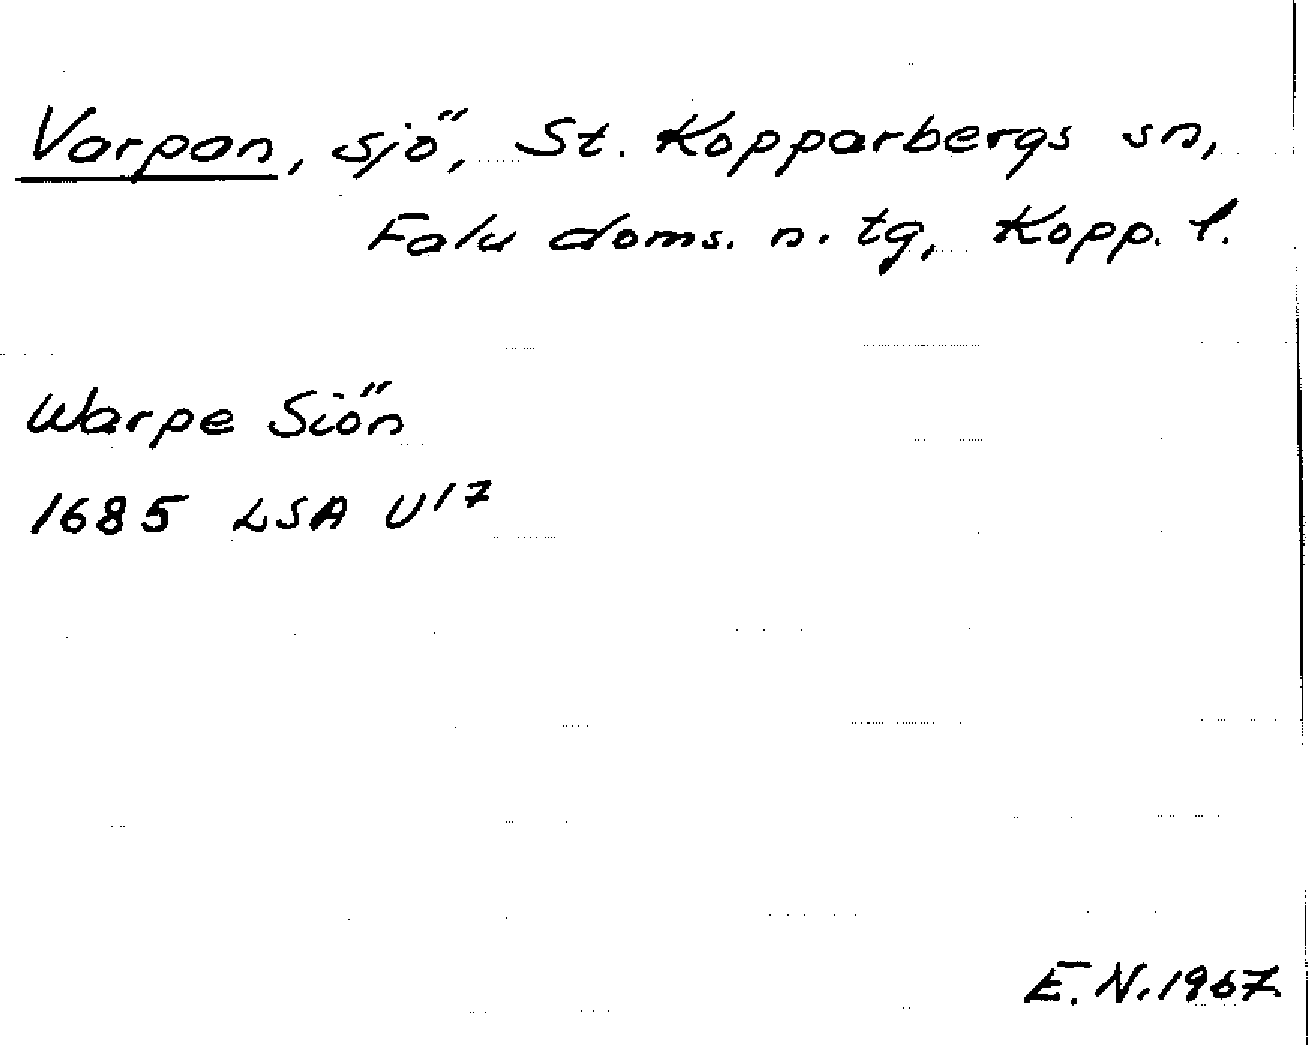 Varpan, sjö, St. Kopparbergs sn,
Falu doms. n. tg, Kopp. l.
Warpe Siön
1685 LSA U17
E.N.1967